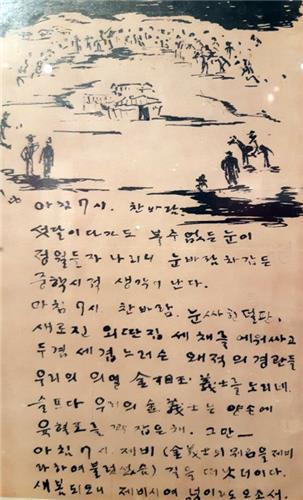 아침 7시. 찬바람.
섯달이다가도 복수없든눈이
정월들자 나리니 눈바람 차갑든
중학시적 생각이 난다.
아침 7시. 찬바람. 눈싸힌덜판.
새로진 외딴집 세채를 에워싸고
두겹 세겹 느러슨 왜적의 경관들
우리의 의열 金相玉 義士를 노리네.
슬프다 우리의 金義士는 양손에
육혈포를 꽉 잡은채. 그만—
아침 7시. 제비 (金義士의 별명을 제비
라하여 불렀섰슴) 길을 떠낫더이다.
새봄되오니 제비시여 넋이라도 오소서.